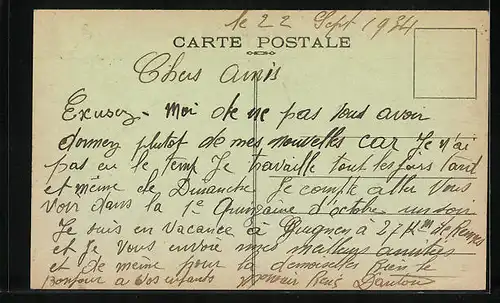 le 22 Sept 1934
CARTE POSTALE
Chers amis
Excusez-Moi de ne pas vous avoir
donner plutot de mes nouvelles car Je n'ai
pas eu le temp Je travaille tout les jours tard
et même de Dimanche Je compte aller vous
voir dans la 1e Quinzaine d'octobre un soir
Je suis en vacance à Guignen à 27 Km de Rennes
et Je vous envoie mes meilleurs amitiés
et de meme pour la demoiselle Bien le
Bonjour a vos enfants René